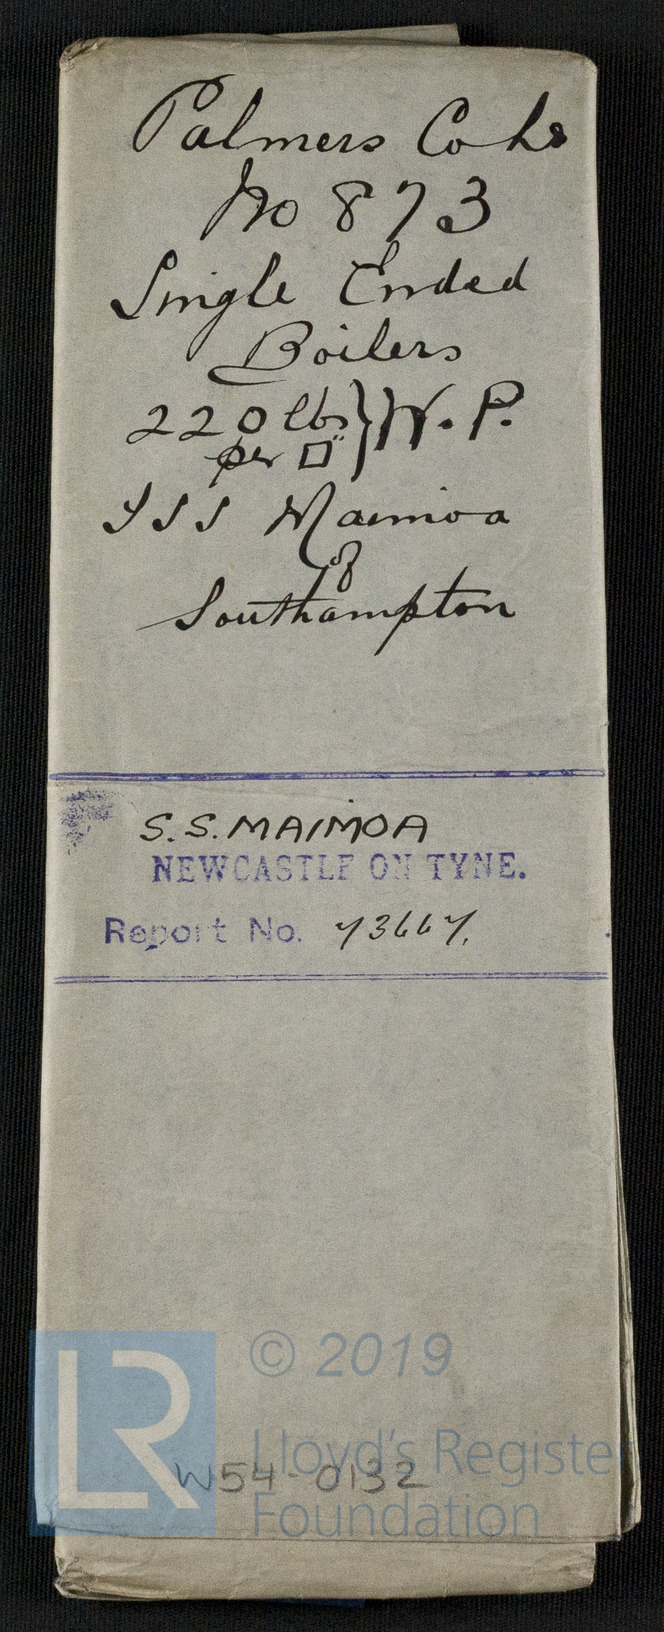 Palmers Co Ld
No 873
Single Ended
Boilers
220 lbs } W. P.
per □"
TSS Maimoa
of
Southampton
S.S. MAIMOA
NEWCASTLE ON TYNE.
Report No. 73667.
© 2019
LR
Lloyd's Register
Foundation
W54-0132